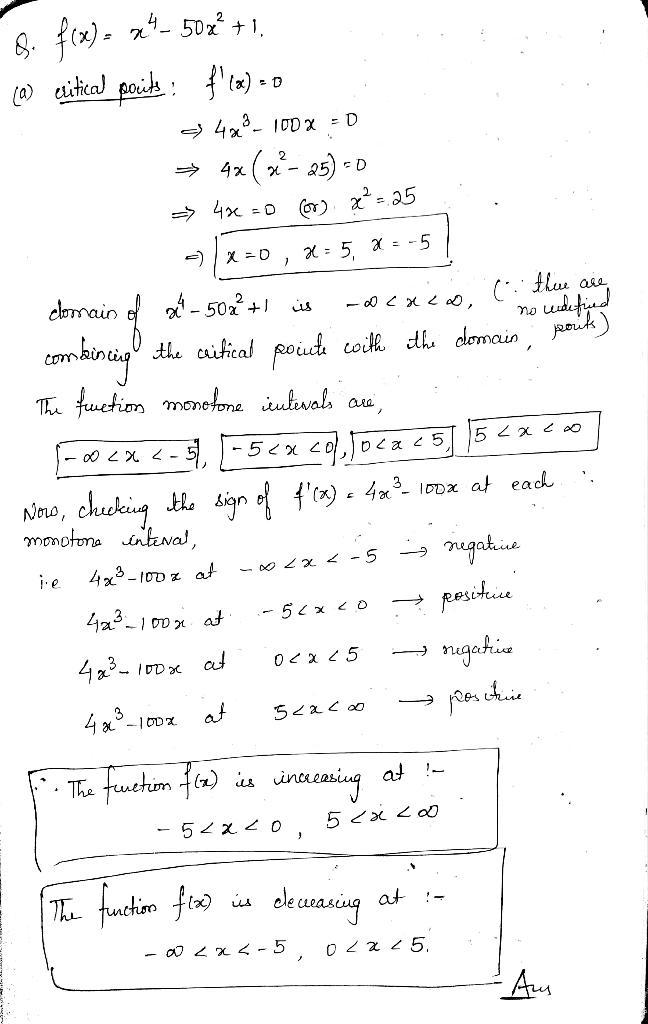 Q. f(x) = x⁴ - 50x² + 1.
(a) critical points : f'(x) = 0
⇒ 4x³ - 100x = 0
⇒ 4x(x² - 25) = 0
⇒ 4x = 0 (or) x² = 25
⇒ x = 0, x = 5, x = -5
domain of x⁴ - 50x² + 1 is -∞ < x < ∞, (∵ there are no undefined points)
combining the critical points with the domain,
The function monotone intervals are,
-∞ < x < -5, -5 < x < 0, 0 < x < 5, 5 < x < ∞
Now, checking the sign of f'(x) = 4x³ - 100x at each
monotone interval,
i.e 4x³ - 100x at -∞ < x < -5 → negative
4x³ - 100x at -5 < x < 0 → positive
4x³ - 100x at 0 < x < 5 → negative
4x³ - 100x at 5 < x < ∞ → positive
∴ The function f(x) is increasing at :-
-5 < x < 0, 5 < x < ∞
The function f(x) is decreasing at :-
-∞ < x < -5, 0 < x < 5.
Ans